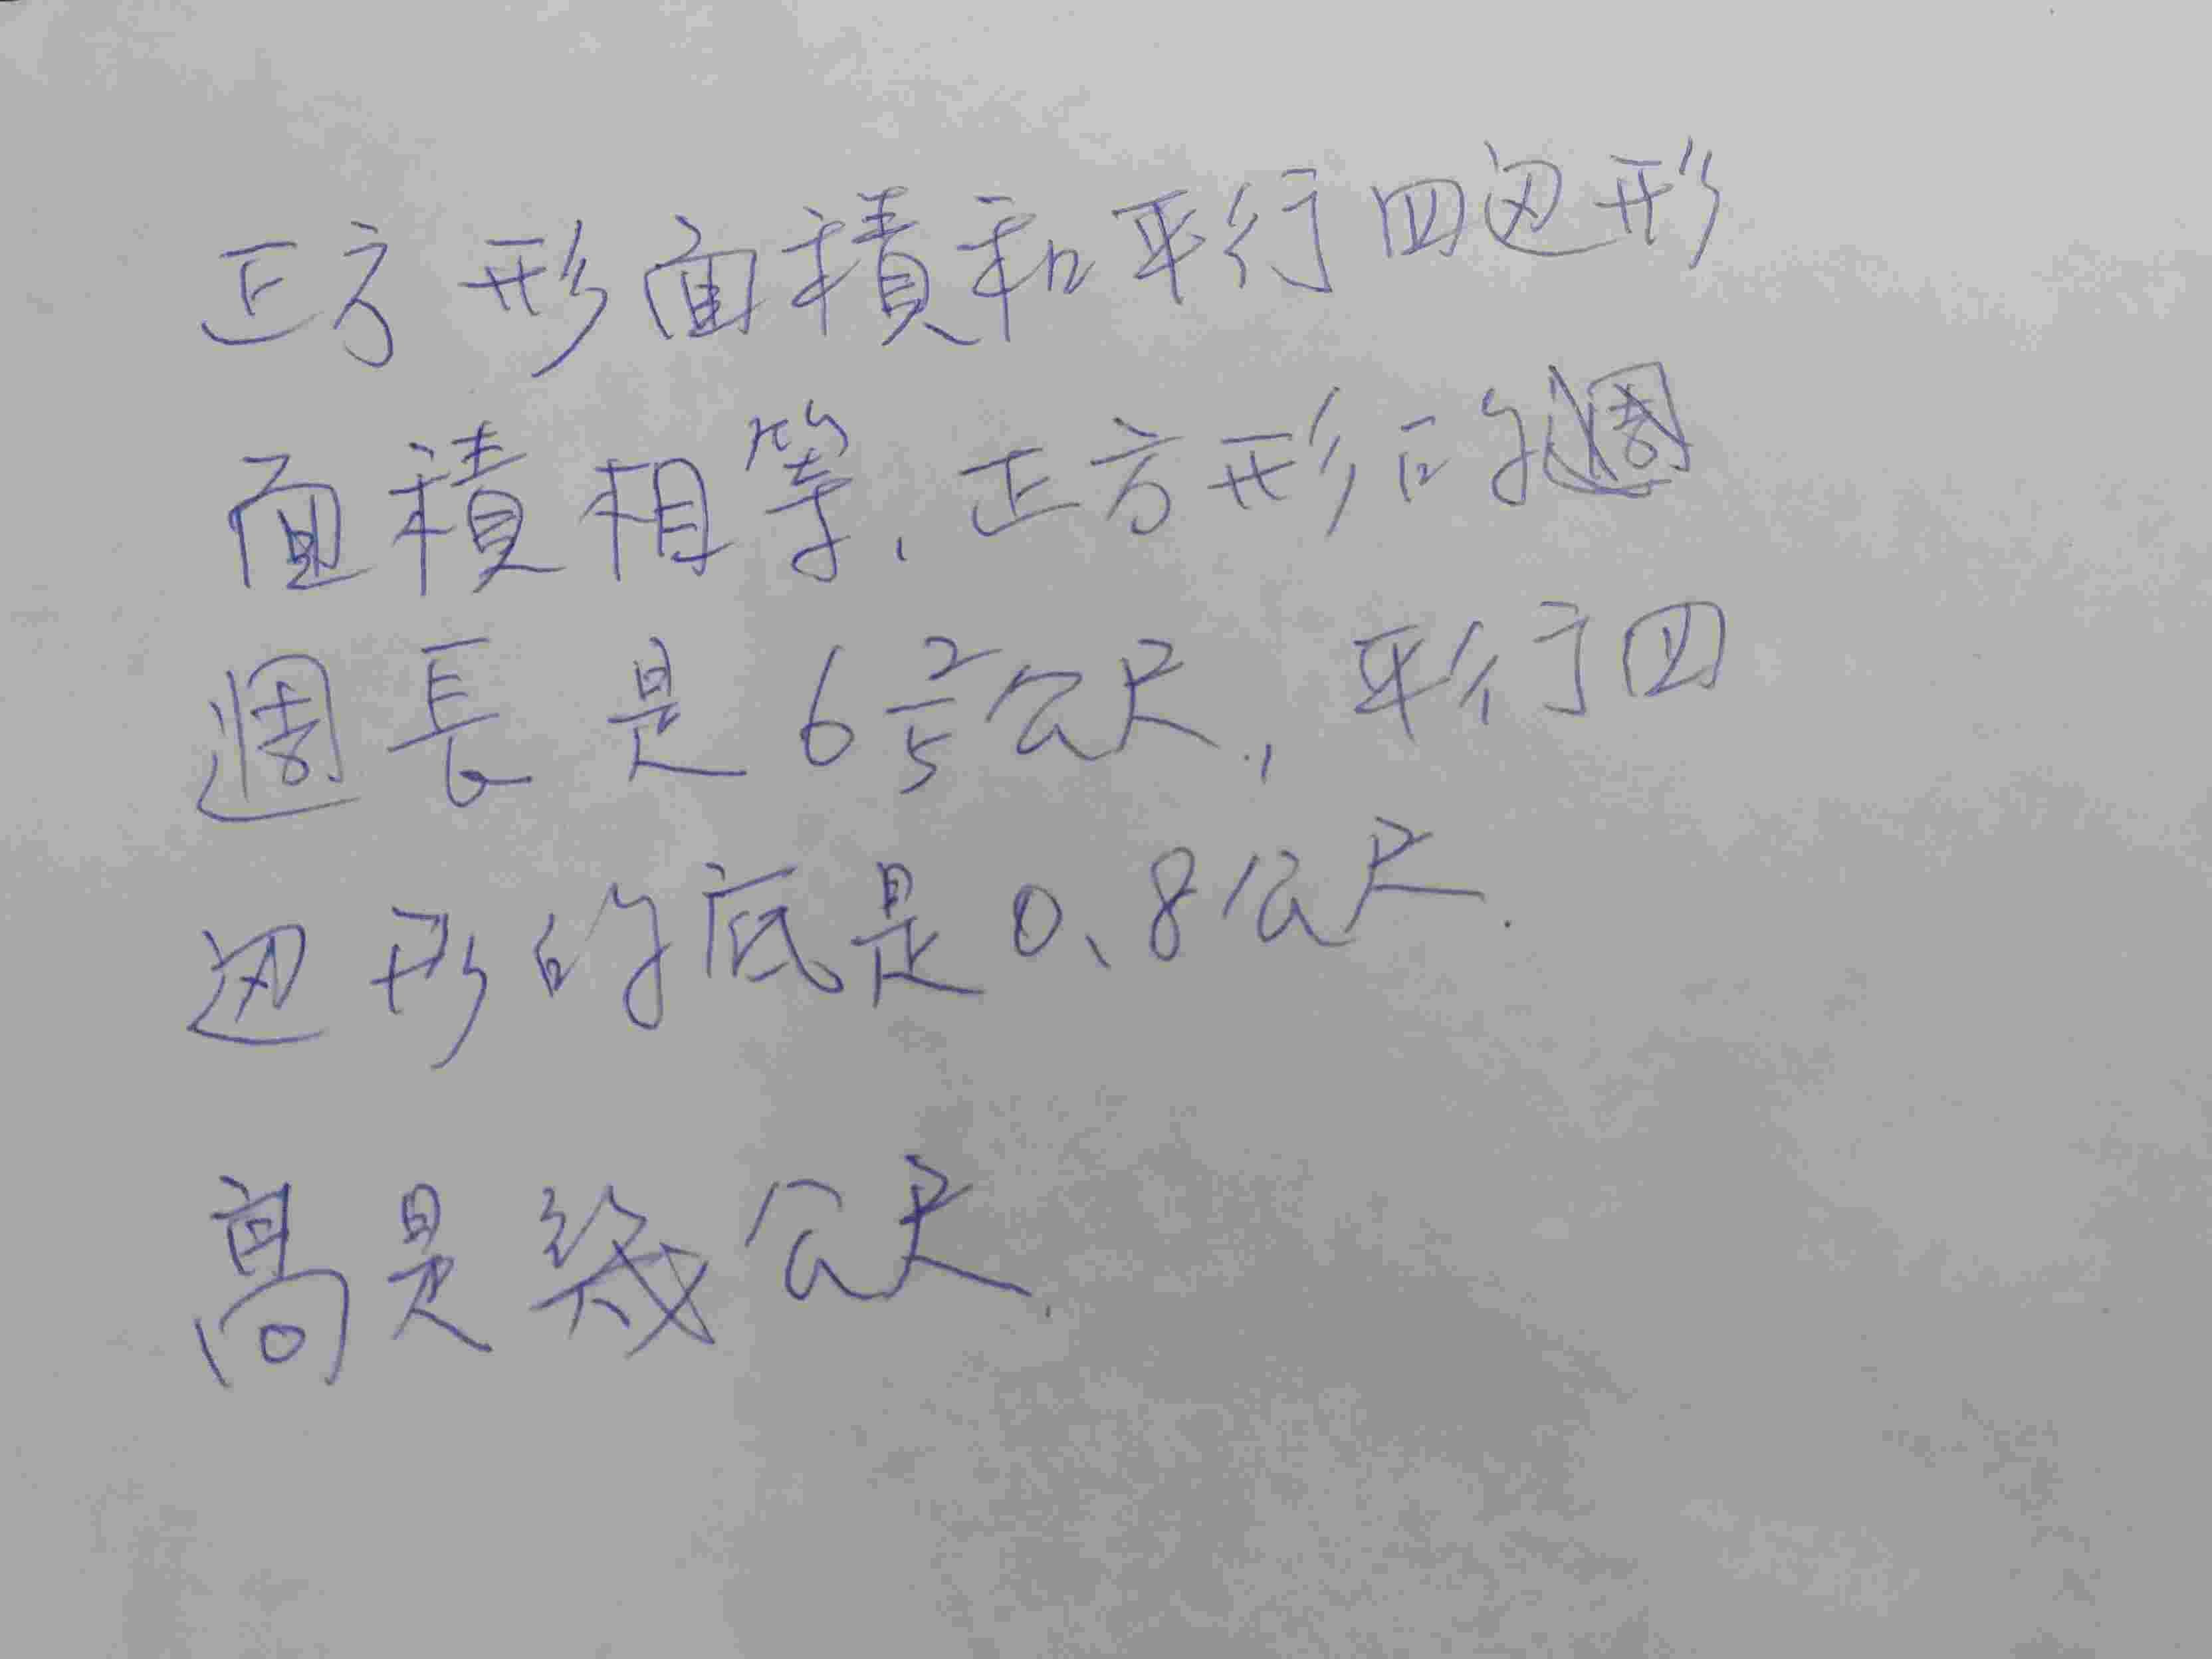 正方形面積和平行四边形
面積相等,正方形的
週長是6 2/5公尺.,平行四
边形的底是0.8公尺.
高是幾公尺.